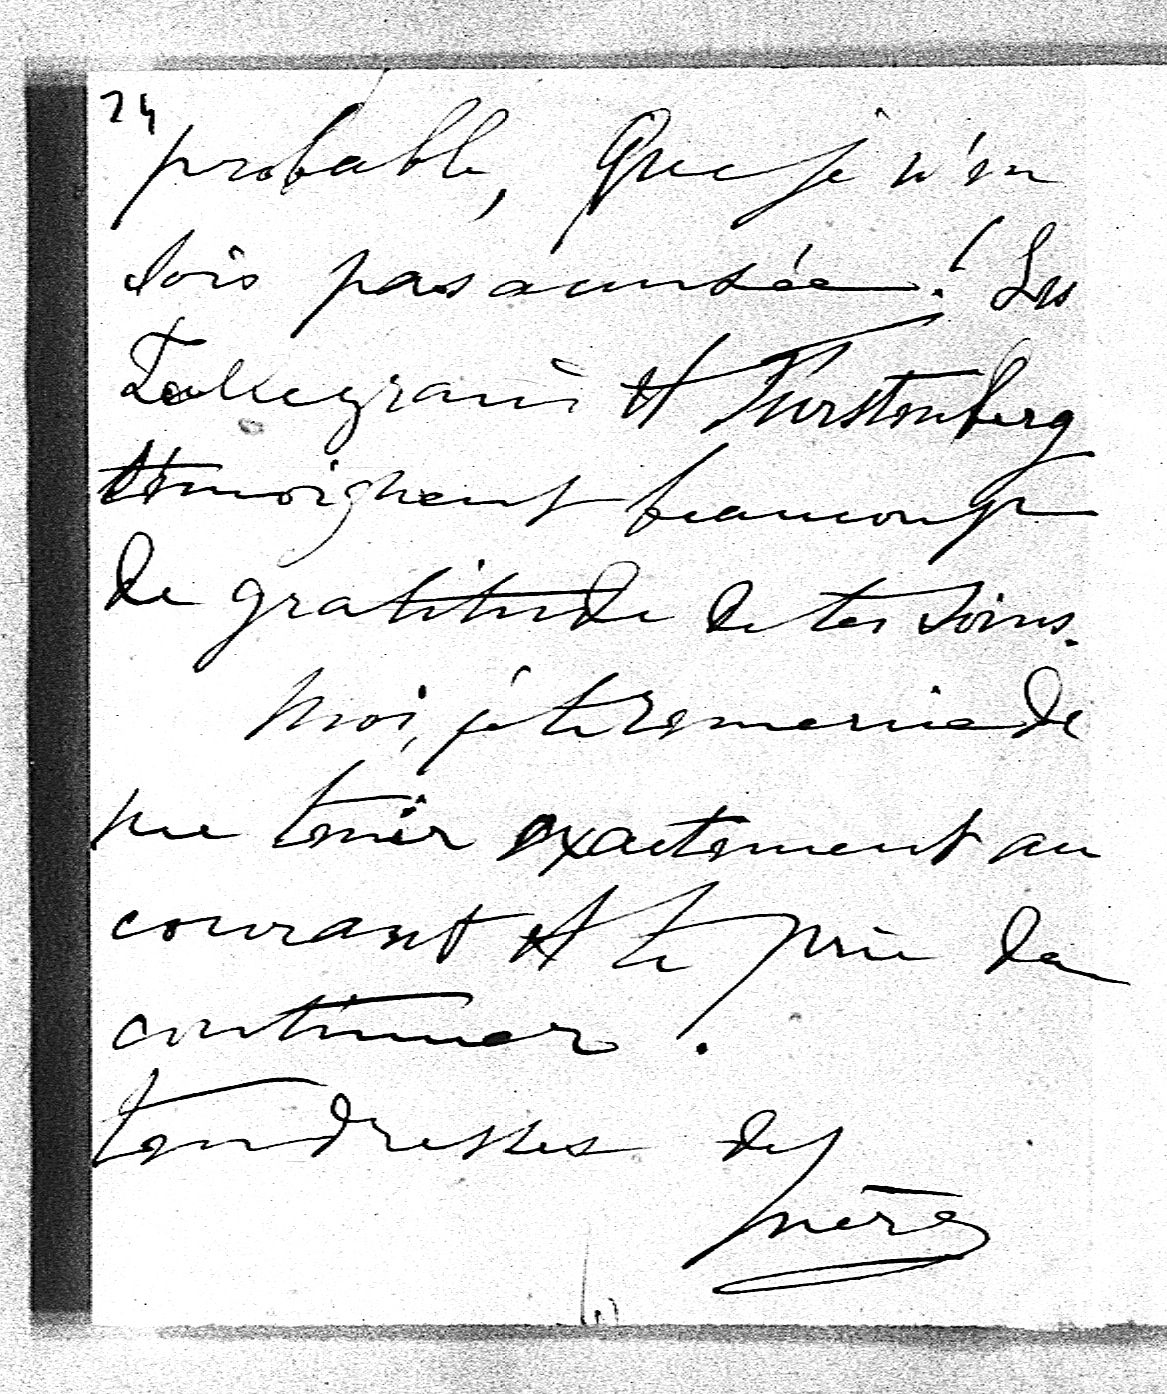 24
probable, que je n'en
sois pas accusée! Les
Tallegrani et Fürstenberg
témoignent beaucoup
de gratitude de tes soins.
Moi, je te remercie de
me tenir exactement au
courant et te prie de
continuer.
tendresses de
mère